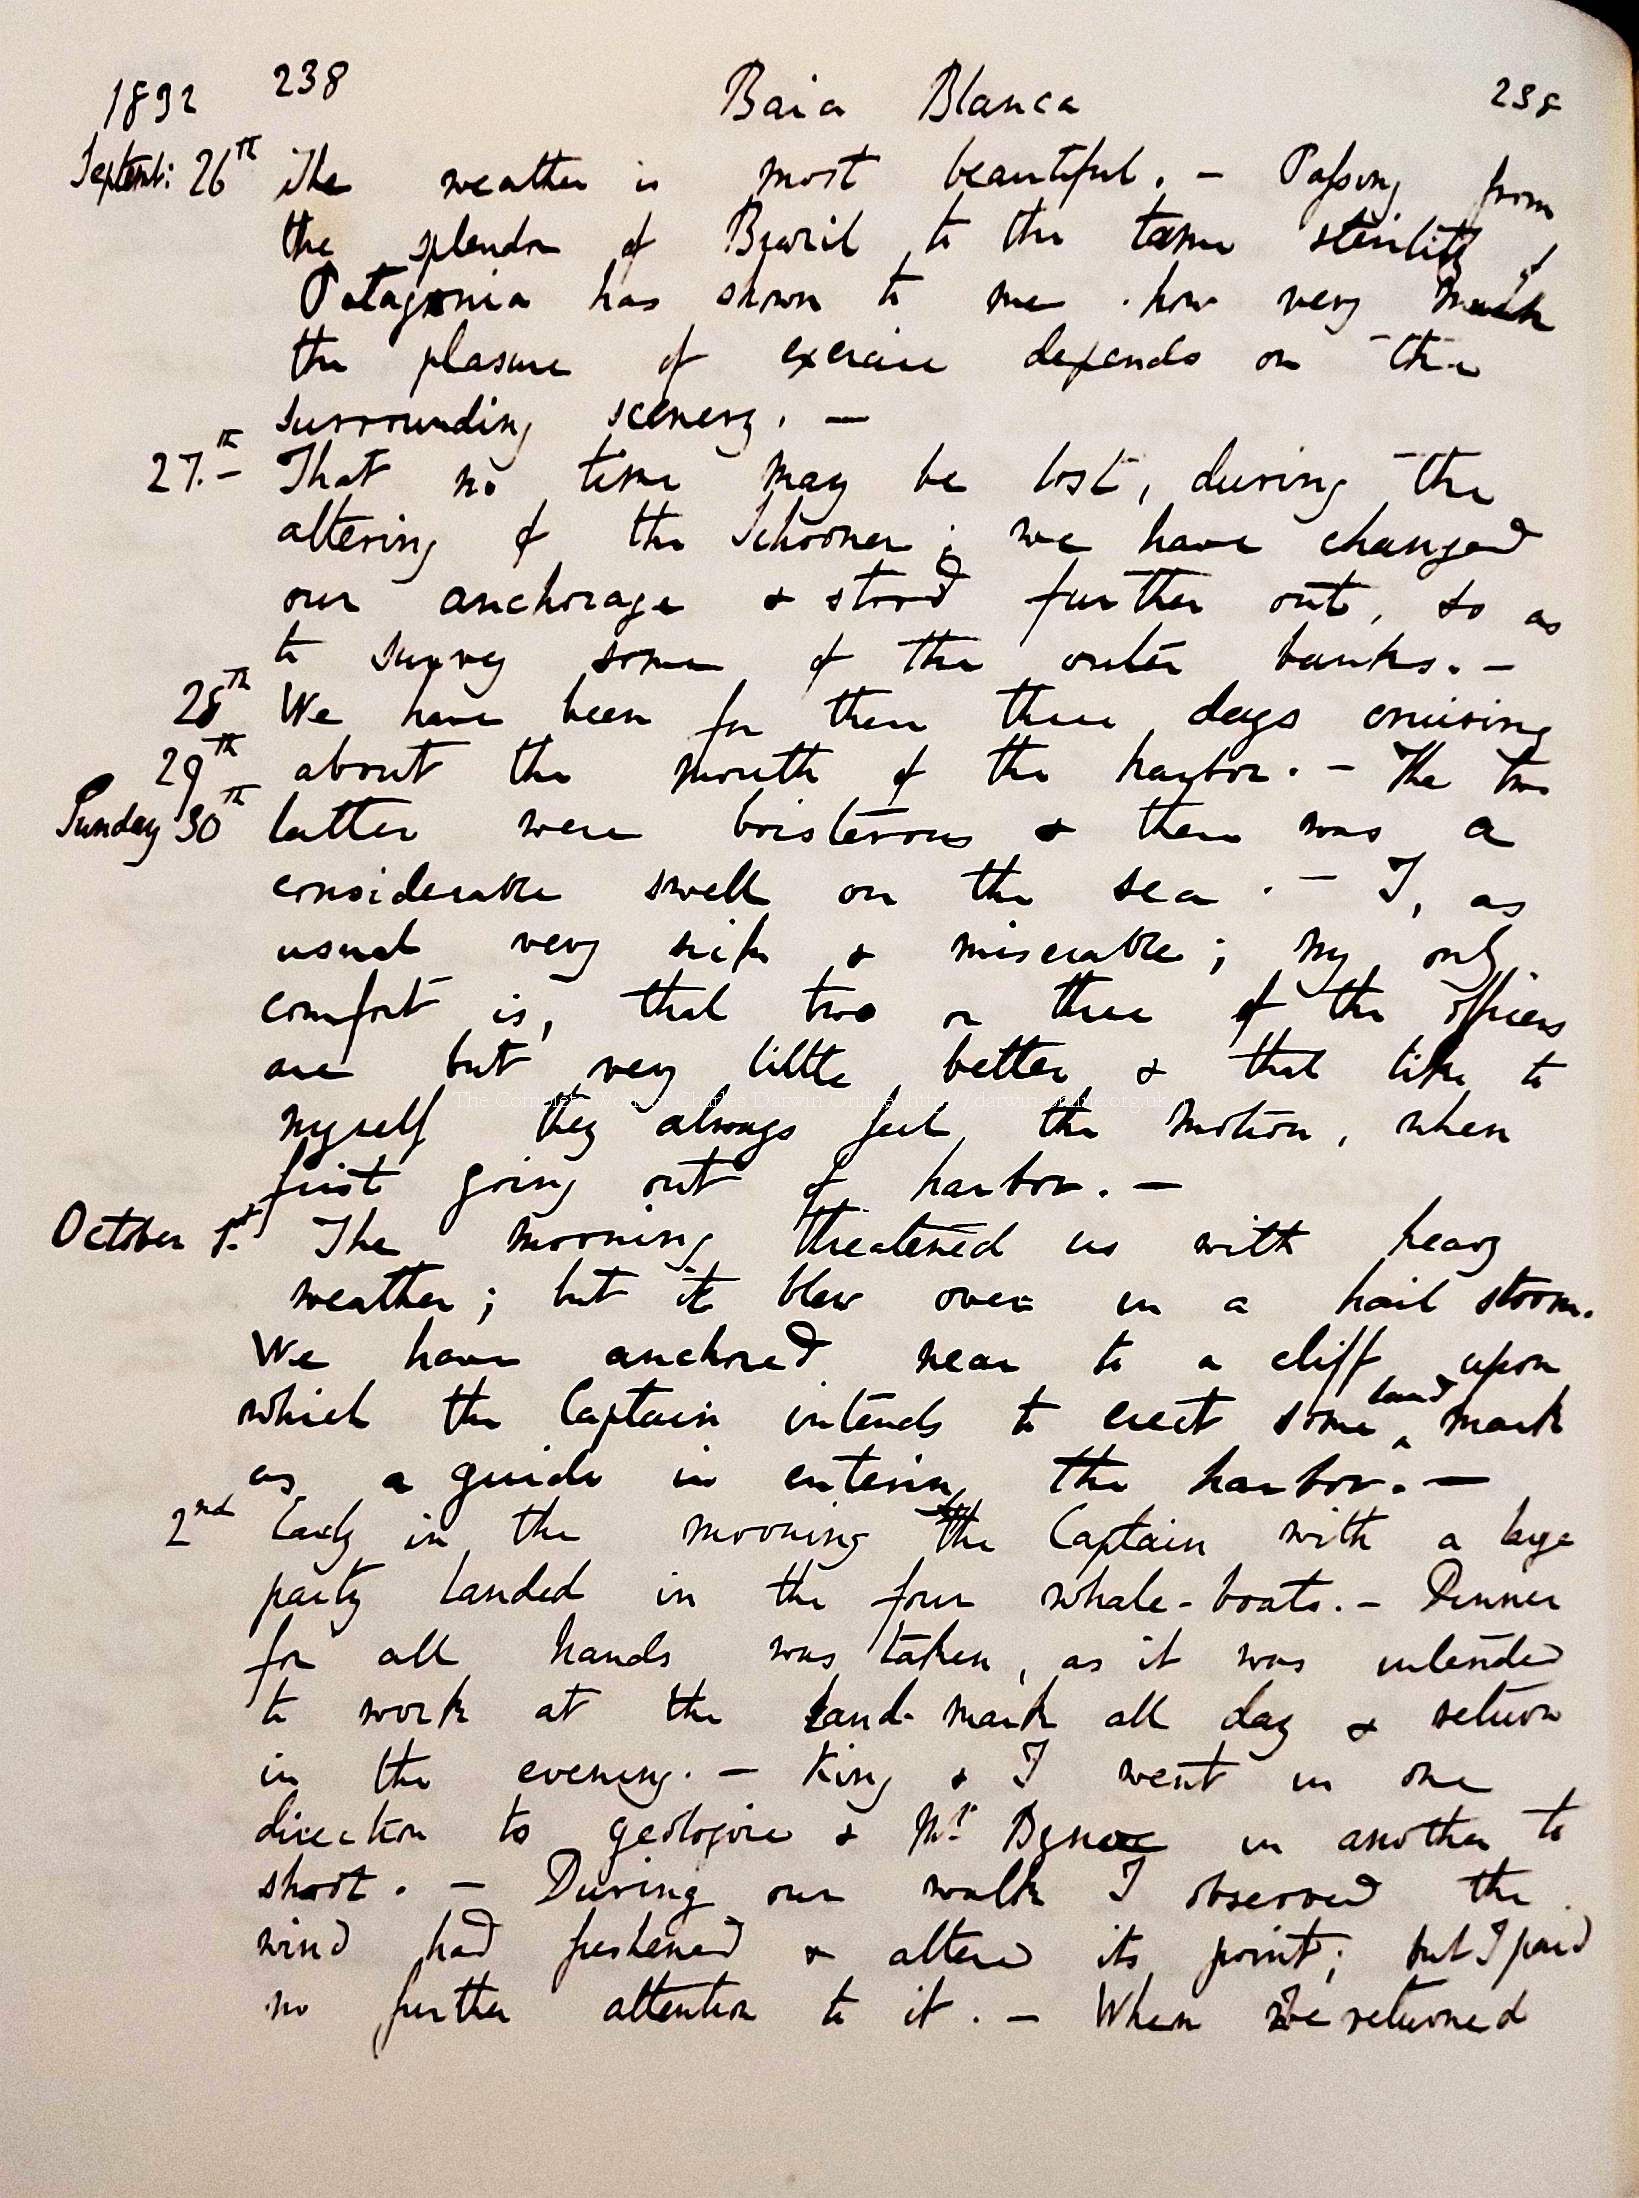 1832 238 Baia Blanca 238
Septemb: 26th The weather is most beautiful. — Passing from
the splendor of Brazil to the tame sterility of
Patagonia has shown to me how very much
the plasure of exercise depends on the
surrounding scenery. —
27.th — That no time may be lost, during the
altering of the Schooner; we have changed
our anchorage & stood further out, so as
to survey some of the outer banks. —
28th We have been for these three days cruising
29th about the mouth of the harbor. — The two
Sunday 30th latter were boisterous & there was a
considerable swell on the sea. — I, as
usual very sick & miserable; my only
comfort is, that two or three of the officers
are but very little better & that like to
The Complete Work of Charles Darwin Online (http://darwin-online.org.uk/)
myself they always feel the motion, when
first going out of harbor. —
October 1st. The morning threatened us with heavy
weather; but it blew over in a hail storm.
We have anchored near to a cliff upon
land
which the Captain intends to erect some ^ mark
as a guide in entering the harbor. —
2nd Early in the morning the Captain with a large
party landed in the four whale-boats. — Dinner
for all hands was taken, as it was intended
to work at the land-mark all day & return
in the evening. — King & I went in one
direction to geologize & Mr Bynoe in another to
shoot. — During our walk I observed the
wind had freshened & altered its point; but I paid
no further attention to it. — When we returned